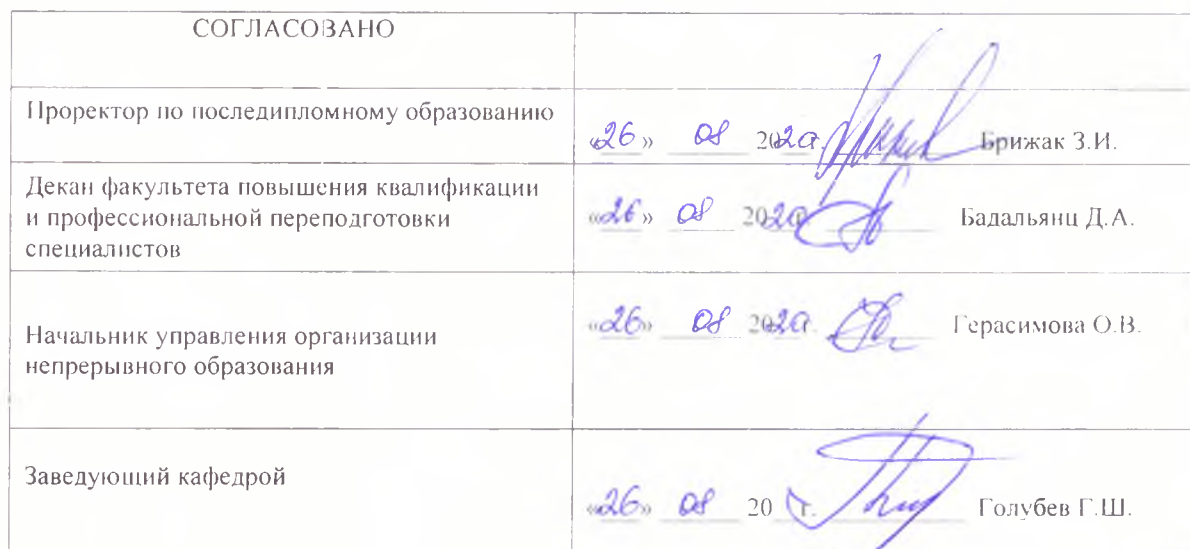 СОГЛАСОВАНО
Проректор по последипломному образованию
«26» 08 2020г. Брижак З.И.
Декан факультета повышения квалификации
и профессиональной переподготовки
специалистов
«26» 08 2020 Бадальянц Д.А.
Начальник управления организации
непрерывного образования
«26» 08 2020г. Герасимова О.В.
Заведующий кафедрой
«26» 08 20 г. Голубев Г.Ш.